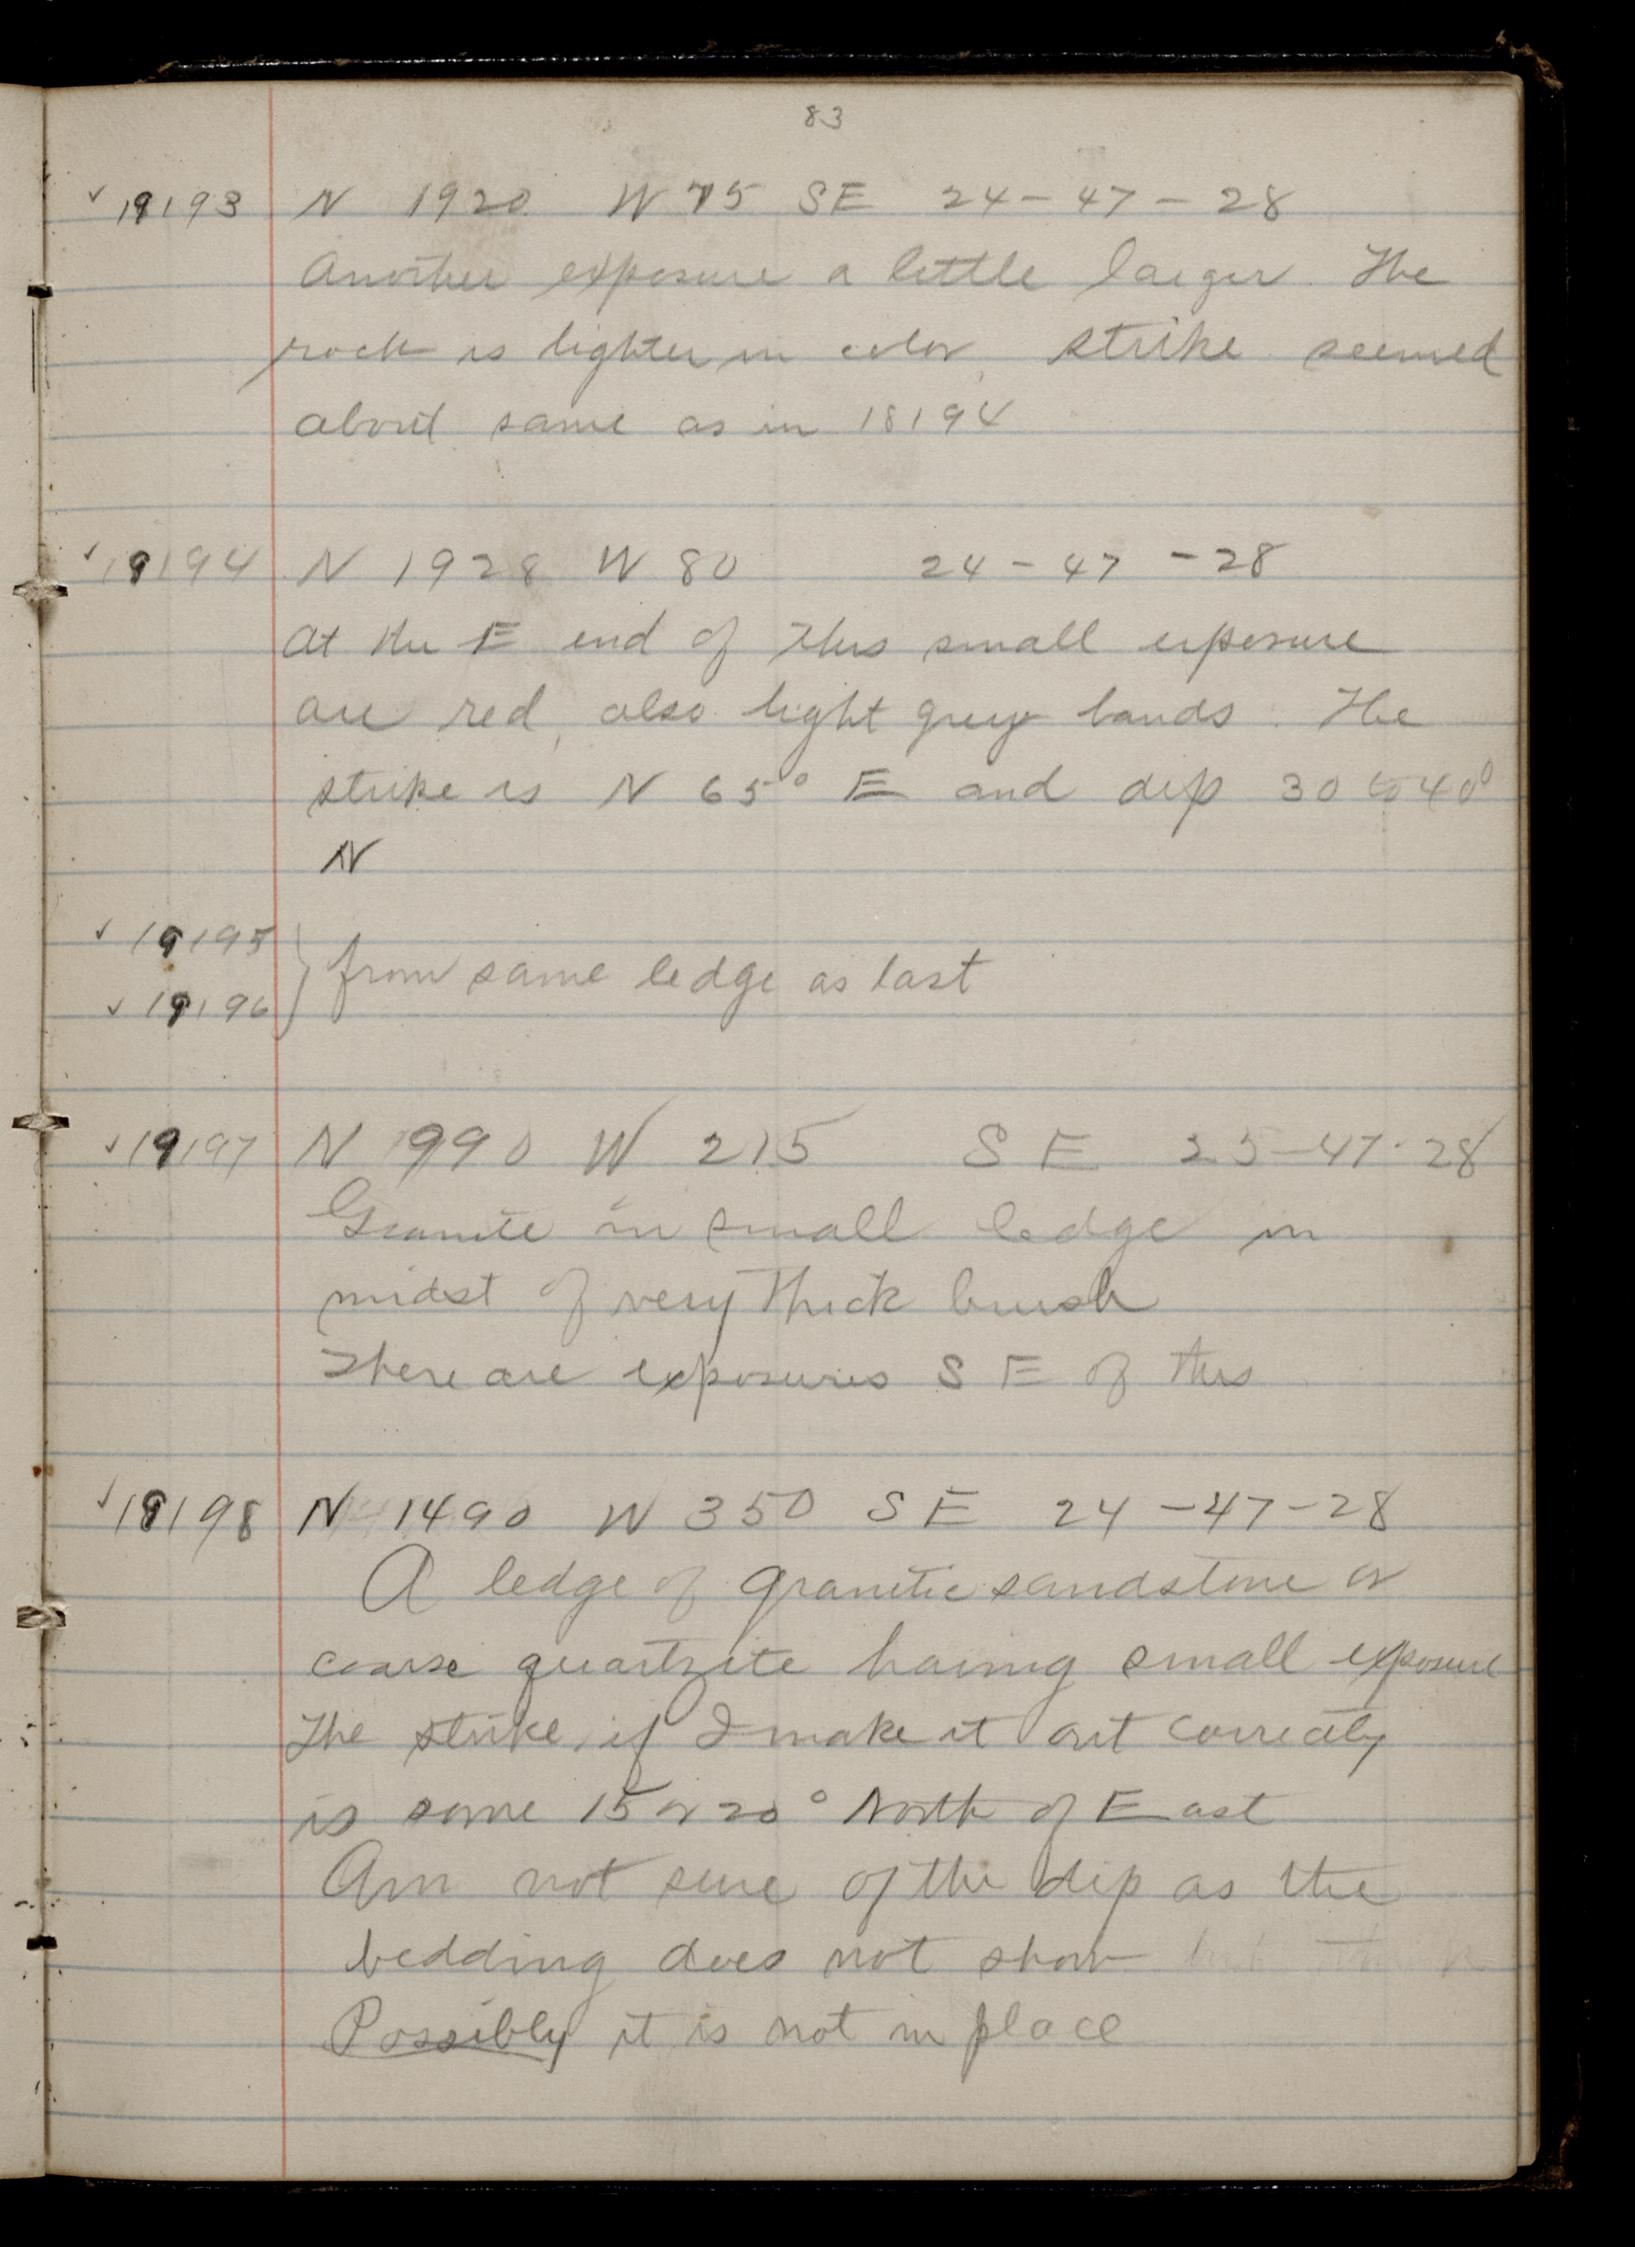 83
✓ 19193 N 1920 W 75 SE 24-47-28
Another exposure a little larger. The
rock is lighter in color, strike seemed
about same as in 18194
✓ 19194 N 1928 W 80 24-47-28
At the E end of this small exposure
are red, also light grey bands. The
strike is N 65° E and dip 30 to 40°
N
✓ 19195
} from same ledge as last
✓ 19196
✓ 19197 N 990 W 215 S E 25-47-28
Granite in small ledge in
midst of very thick brush
There are exposures S E of this
✓ 19198 N 1490 W 350 S E 24-47-28
A ledge of granitic sandstone or
coarse quartzite having small exposure
The strike, if I make it out correctly
is some 15 or 20° North of East
Am not sure of the dip as the
bedding does not show
Possibly it is not in place